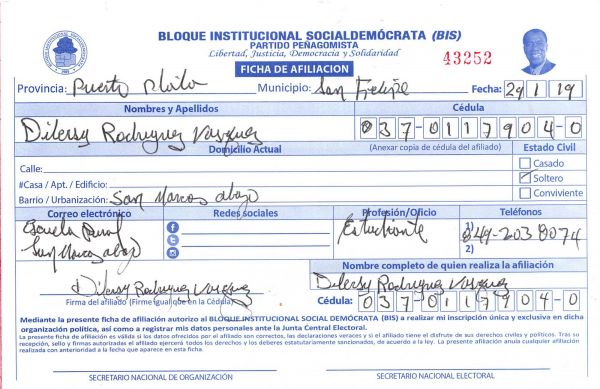 BLOQUE INSTITUCIONAL SOCIALDEMÓCRATA (BIS)
PARTIDO PEÑAGOMISTA
Libertad, Justicia, Democracia y Solidaridad
43252
FICHA DE AFILIACION
Provincia: Puerto Plata Municipio: San Felipe Fecha: 29 1 19
Nombres y Apellidos Cédula
Dilersy Rodriguez Vasquez 037-0117904-0
Domicilio Actual (Anexar copia de cédula del afiliado) Estado Civil
Calle: Casado
#Casa / Apt. / Edificio: Soltero
Barrio / Urbanización: San Marcos abajo Conviviente
Correo electrónico Redes sociales Profesión/Oficio Teléfonos
Escuela San Marcos abajo Estudiante 1) 849-203 8074
2)
Nombre completo de quien realiza la afiliación
Dilersy Rodriguez Vasquez Dilersy Rodriguez Vasquez
Firma del afiliado (Firme igual que en la Cédula) Cédula: 037-0117904-0
Mediante la presente ficha de afiliación autorizo al BLOQUE INSTITUCIONAL SOCIAL DEMÓCRATA (BIS) a realizar mi inscripción única y exclusiva en dicha
organización política, así como a registrar mis datos personales ante la Junta Central Electoral.
La presente ficha de afiliación es válida si los datos ofrecidos por el afiliado son correctos, las declaraciones veraces y si el afiliado tiene el disfrute de sus derechos civiles y políticos. Tras su
recepción, sello y firmas autorizadas el afiliado ejercerá todos los derechos y los deberes estatutariamente sancionados, de acuerdo a la ley. La presente afiliación anula cualquier afiliación
realizada con anterioridad a la fecha que aparece en esta ficha.
SECRETARIO NACIONAL DE ORGANIZACIÓN SECRETARIO NACIONAL ELECTORAL